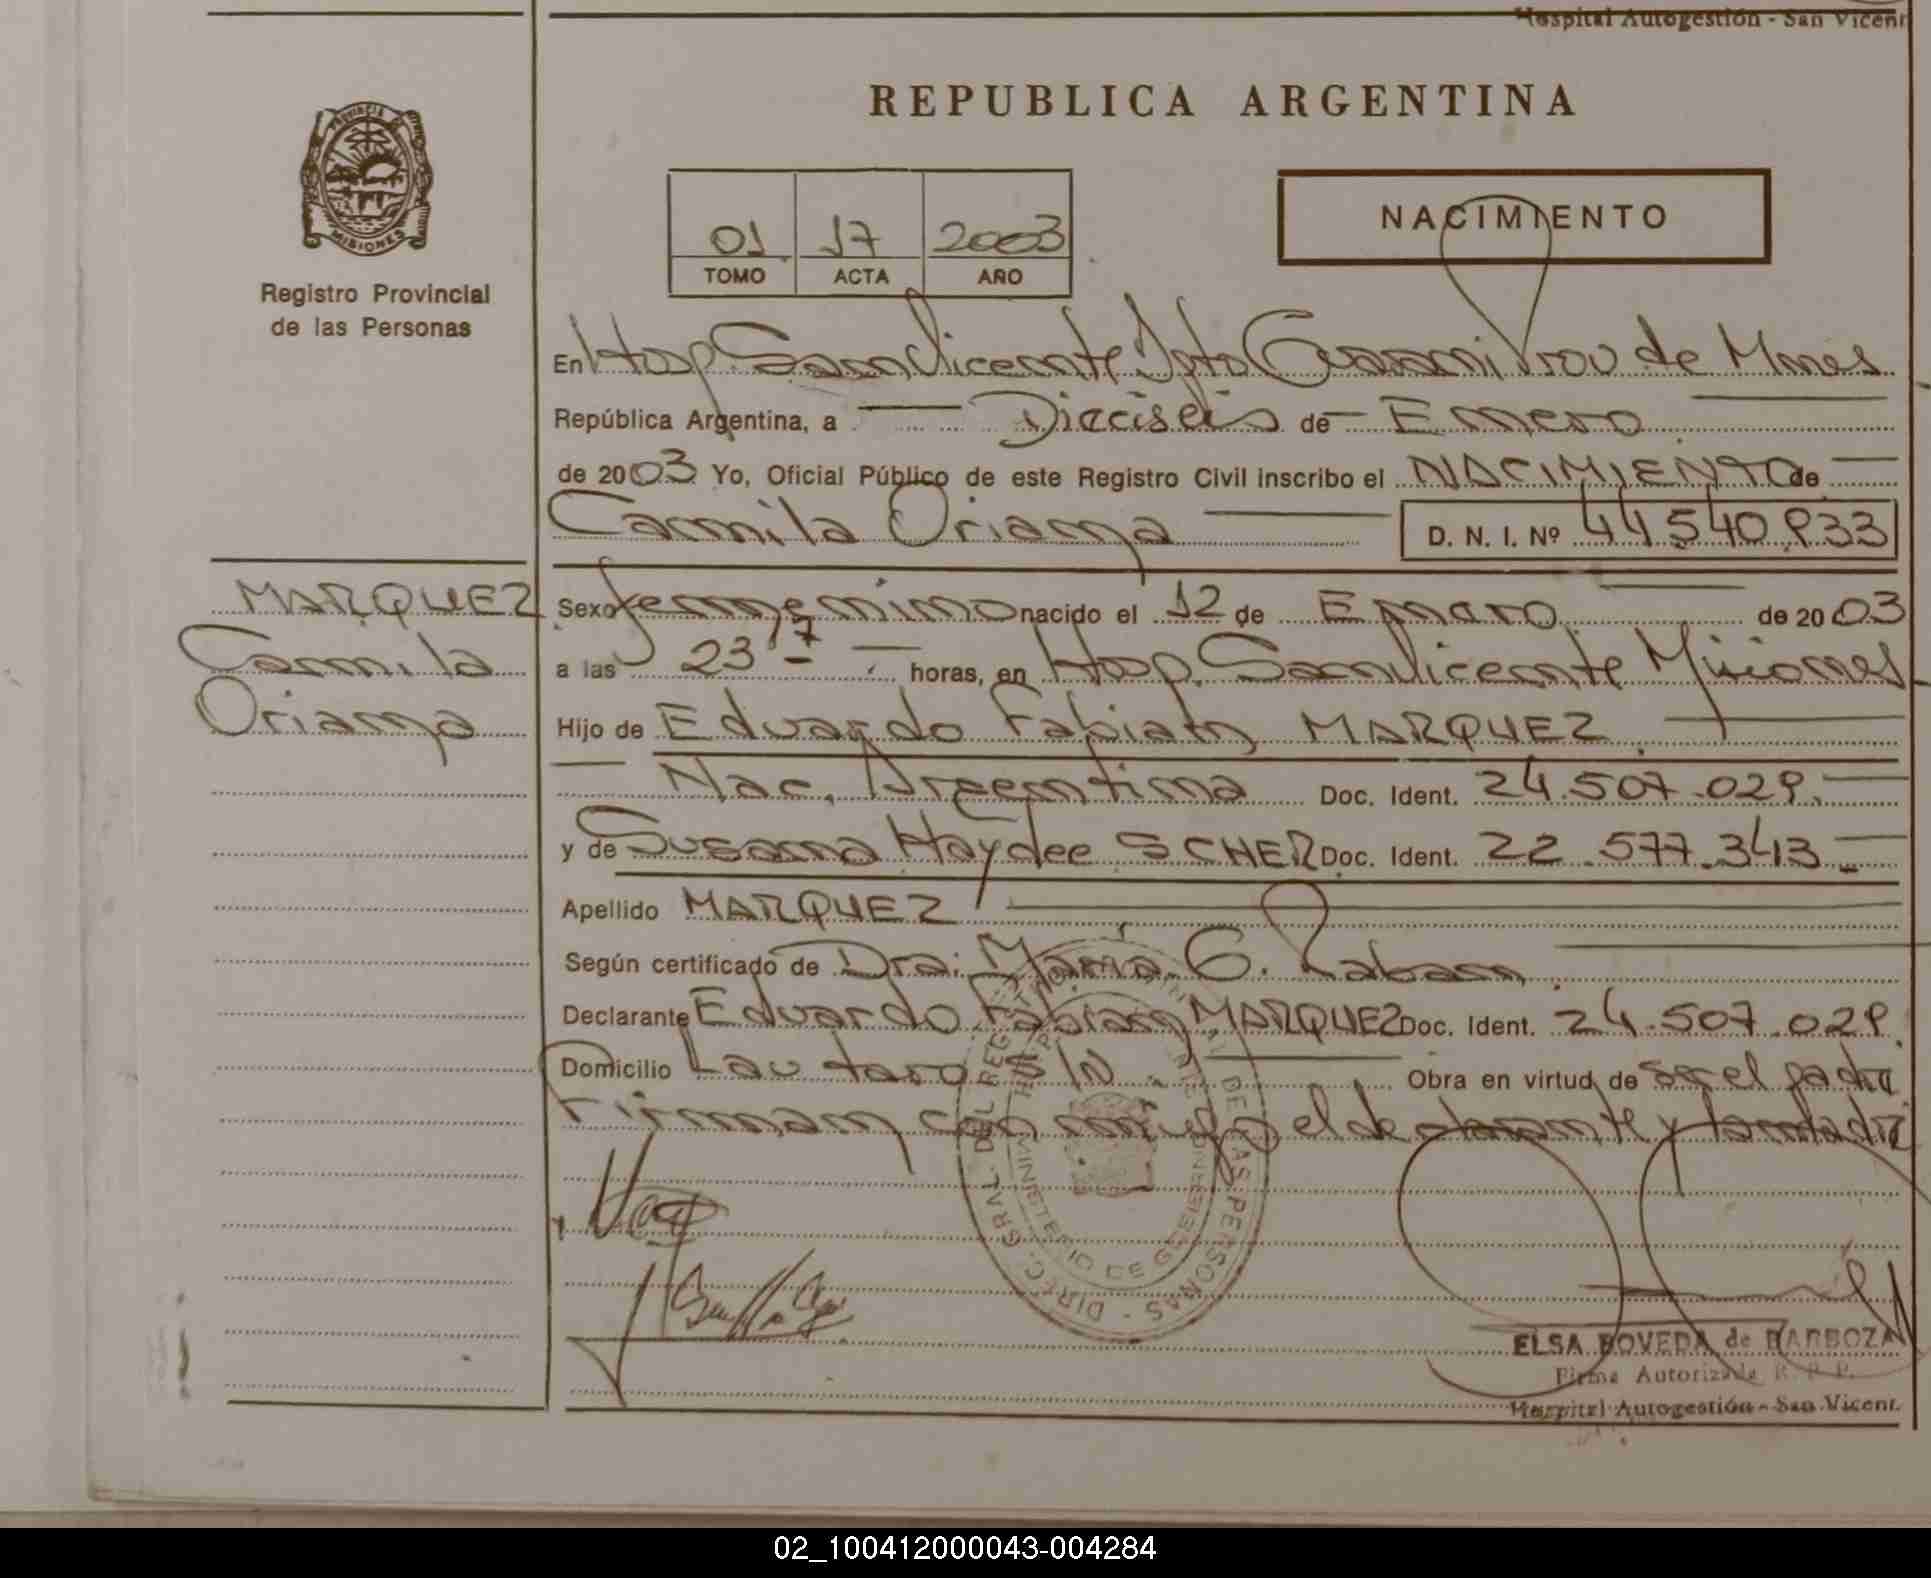 Hospital Autogestión - San Vicent
REPUBLICA ARGENTINA
PROVINCIA DE
MISIONES
Registro Provincial
de las Personas
01 17 2003
TOMO ACTA AÑO
NACIMIENTO
En Hosp. San Vicente Dpto Guarani Prov de Mnes
República Argentina, a Dieciseis de Enero
de 2003 Yo, Oficial Público de este Registro Civil inscribo el NACIMIENTO de
Camila Oriana D. N. I. Nº 44540933
MARQUEZ
Camila
Oriana
Sexo femenino nacido el 12 de Enero de 2003
a las 23 horas, en Hosp. San Vicente Misiones
Hijo de Eduardo Fabian MARQUEZ
Nac. Argentina Doc. Ident. 24.507.029.
y de Susana Haydee SCHER Doc. Ident. 22.577.343
Apellido MARQUEZ
Según certificado de Dra. Maria G.
Declarante Eduardo Fabian MARQUEZ Doc. Ident. 24.507.029.
Domicilio Lautaro S/N. Obra en virtud de ser el padre
Firman conmigo el declarante y
DIREC. GRAL. DEL REGISTRO PROVINCIAL DE LAS PERSONAS -
MINISTERIO DE GOBIERNO
ELSA BOVEDA de BARBOZA
Firma Autorizada R. P. P.
Hospital Autogestión - San Vicent.
02_100412000043-004284